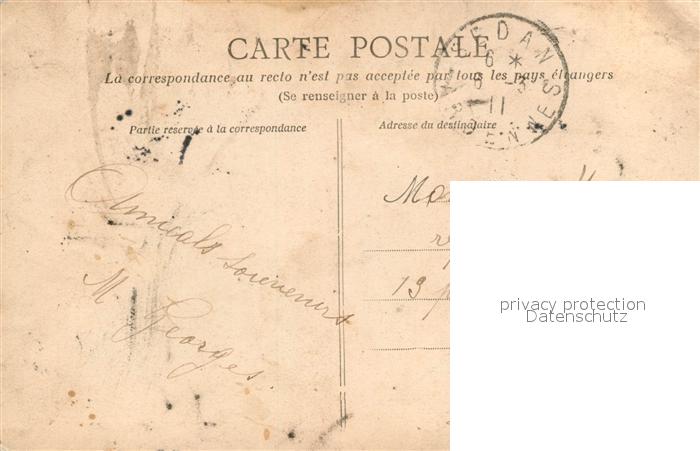 CARTE POSTALE
La correspondance au recto n'est pas acceptée par tous les pays étrangers
(Se renseigner à la poste)
SEDAN
6 *
6 -3
11
ARDENNES
Partie reservée à la correspondance
Adresse du destinataire
Amicals souvenirs
M. Georges.
19
privacy protection
Datenschutz